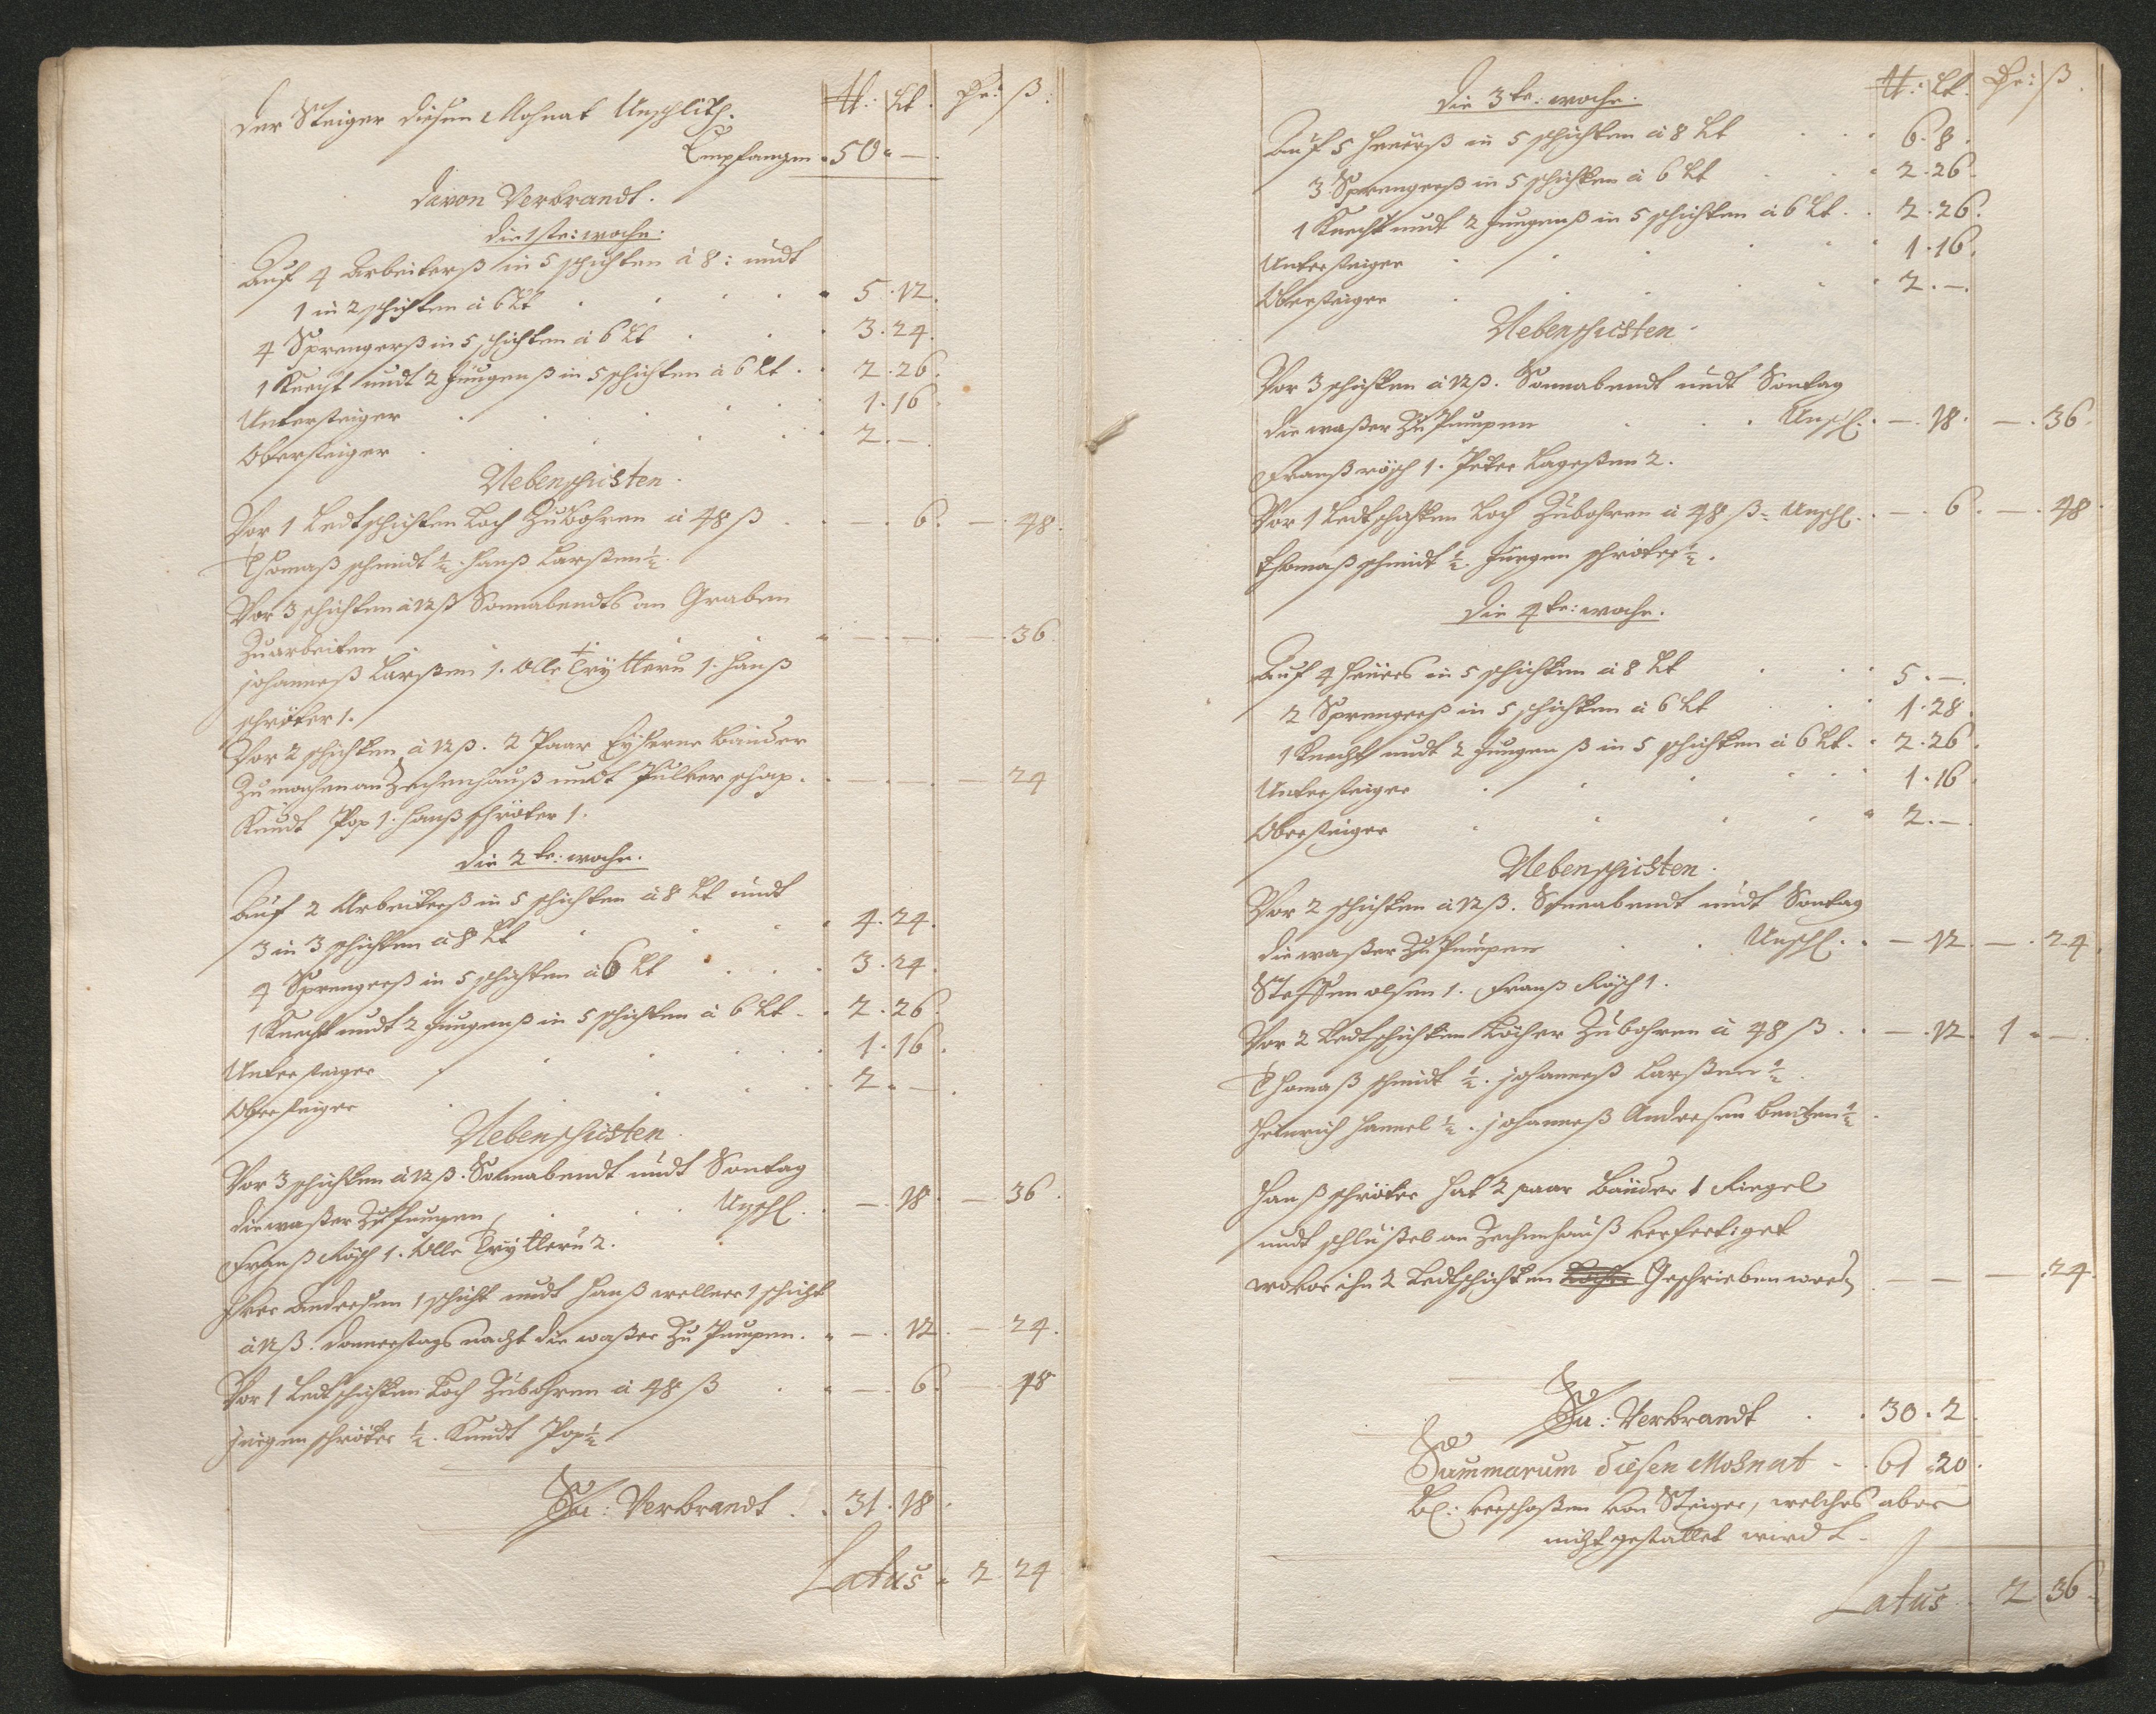 ₶: Lt. Rx: ß:
Der Steiger diesen Mohnat Unschlith.
Empfangen . 50 . —
davon Verbrandt.
die 1ste: woche.
Auf 4 Arbeiterß in 5 schichten à 8: undt
1 in 2 schichten à 6 Lt . 5 . 12.
4 Sprengerß in 5 schichten à 6 Lt . 3 . 24.
1 Knecht undt 2 Jungenß in 5 schichten à 6 Lt . 2 . 26.
Untersteiger . 1 . 16
Obersteiger . 2 . —.
Nebenschichten.
Vor 1 Ledtschichten Loch Zubohren à 48 ß . — . 6. — . 48.
Thomaß schmidt ½. Hanß Larßen ½.
Vor 3 schichten à 12 ß Sonnabendts am Graben
Zuarbeiten . — . — . — . 36.
Johanneß Larßen 1. Olle Trytteru 1. Hanß
schröter 1.
Vor 2 schichten à 12 ß. 2 Paar Eyserne bänder
Zu machen an Zechenhauß undt Pulver schap. — . — . — 24
Knudt Pop 1. Hanß schröter 1.
Die 2te: woche.
Auf 2 Arbeiterß in 5 schichten à 8 Lt undt
3 in 3 schichten à 8 Lt . 4 . 24.
4 Sprengerß in 5 schichten à 6 Lt . 3 . 24.
1 Knecht undt 2 Jungenß in 5 schichten à 6 Lt . 2 . 26.
Untersteiger . 1 . 16.
Obersteiger . 2 . —
Nebenschichten.
Vor 3 schichten à 12 ß. Sonnabendt undt Sontag
die waßer Zu Pumpen . Unschl. — . 18. — 36.
Franß Rösch 1. Olle Trytteru 2.
Andersen 1 schicht undt Hanß wellner 1 schicht
à 12 ß. donnerstags nacht die waßer Zu Pumpen . — . 12. — 24.
Vor 1 Ledtschichten Loch Zubohren à 48 ß . — . 6. — 48
Jürgen schröter ½. Knudt Pop ½
Su: Verbrandt . 31 . 18.
Latus . 2 24
₶: Lt. Rx: ß.
Die 3te: woche.
Auf 5 Heuerß in 5 schichten à 8 Lt . 6 . 8.
3 Sprengerß in 5 schichten à 6 Lt . 2 . 26.
1 Knecht undt 2 Jungenß in 5 schichten à 6 Lt . 2 . 26.
Untersteiger . 1 . 16.
Obersteiger . 2 . —.
Nebenschichten.
Vor 3 schichten à 12 ß. Sonnabendt undt Sontag
die waßer Zu Pumpen . Unschl. — . 18. — . 36.
Franß rösch 1. Peter Lageßen 2.
Vor 1 Ledtschichten Loch Zubohren à 48 ß = Unschl. — . 6. — . 48
Thomaß schmidt ½. Jürgen schröter ½.
Die 4te: woche.
Auf 4 Heüers in 5 schichten à 8 Lt . 5 . —.
2 Sprengerß in 5 schichten à 6 Lt . 1 . 28
1 Knecht undt 2 Jungenß in 5 schichten à 6 Lt . 2 . 26.
Untersteiger . 1 . 16.
Obersteiger . 2 . —
Nebenschichten.
Vor 2 schichten à 12 ß. Sonnabendt undt Sontag
die waßer Zu Pumpen . Unschl. — 12. — . 24.
Steffen olsen 1. Franß Rösch 1.
Vor 2 Ledtschichten Löcher Zubohren à 48 ß . — . 12. 1 . —.
Thomaß schmidt ½. Johanneß Larßen ½
Heinrich Hannel ½. Johanneß Andersen bentzen ½.
Hanß schröter hat 2 paar bänder 1 Riegel
undt schlüßel an Zechenhauß verfertiget
wovor ihm 2 Ledtschichten Geschrieben worden — — 24.
Su: Verbrandt . 30 . 2.
Summarum diesen Mohnat - . 61 . 20.
verschoßen von Steiger, welches aber
nicht gestattet wirdt.
Latus . 2 36.